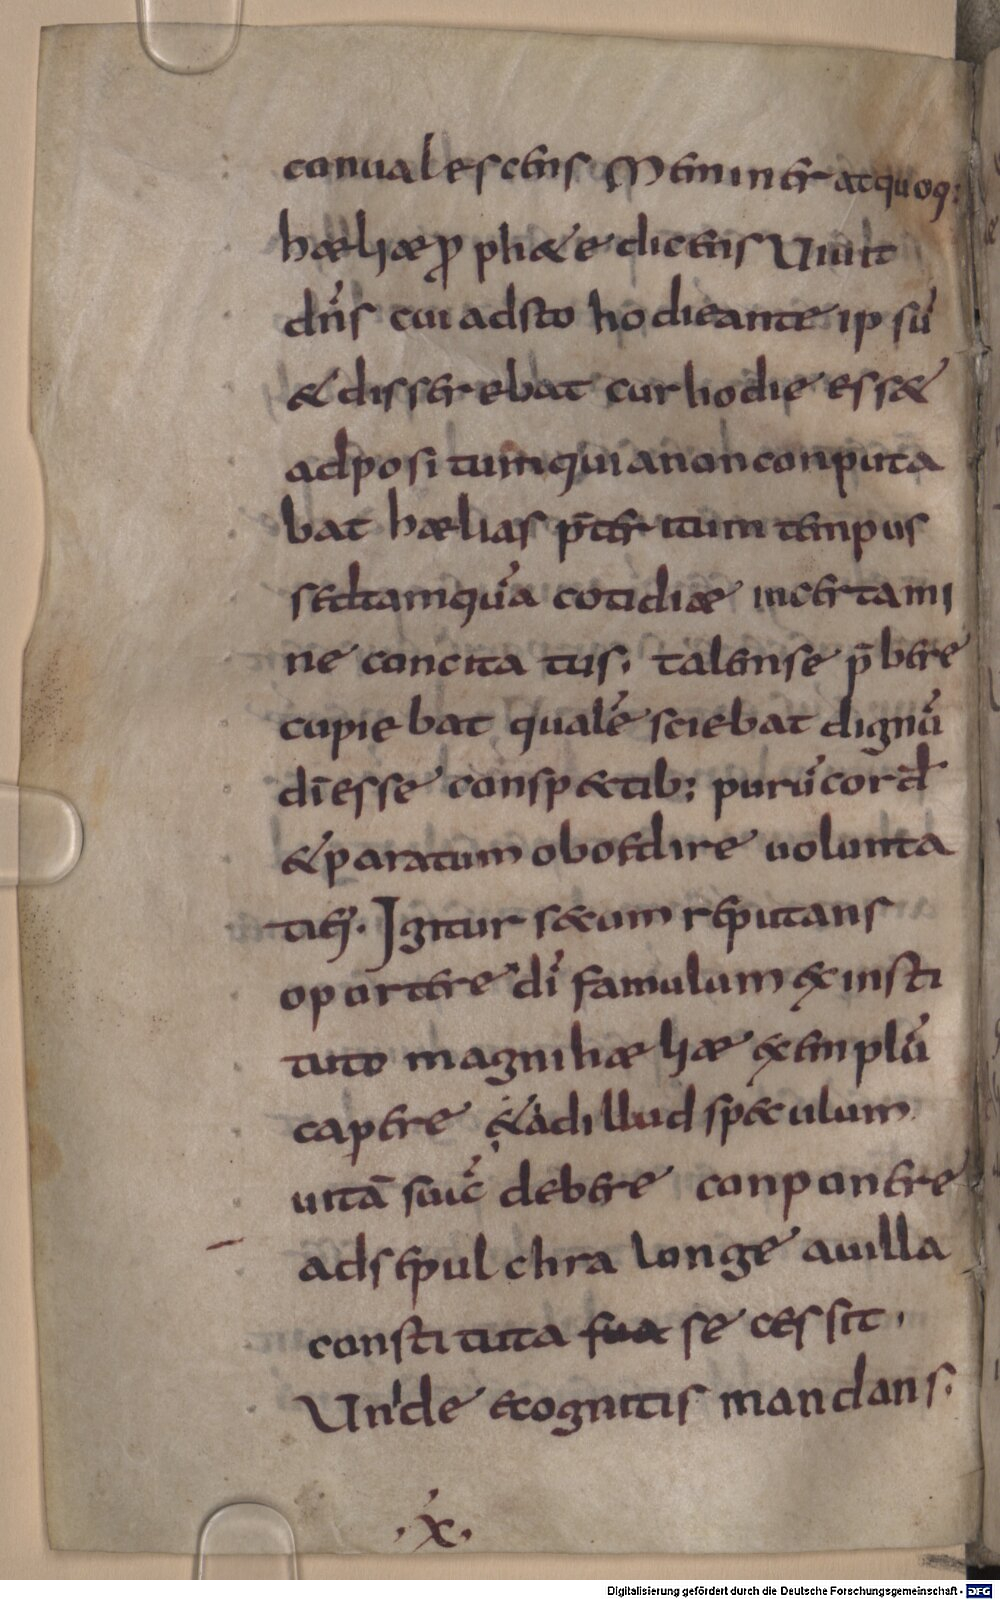 conualescens Meminerat quoq;
hæliæ ꝓph&e dicens Viuit
dn̄s cui adsto hodie ante ipsū
& disserebat cur hodie ess&
adpositum quia non conputa
bat hælias p̄teritum tempus
sed tamquā cotidiæ in certami
ne concitatus. tale in se p̄bere
cupiebat qualē sciebat dignū
dī esse conspectib; purū cord
& paratum oboedire volunta
ti ei. Igitur secum reputans
oportere dī famulum ex insti
tuto magni hæliæ exemplū
capere & ad illud speculum
uitā suā debere conponere
ad sepulchra longe a uilla
constituta sua secessit.
Unde et cognitis mandans.
.x.
Digitalisierung gefördert durch die Deutsche Forschungsgemeinschaft - DFG